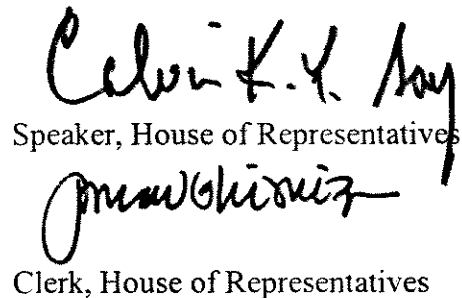 Calvin K. Y. Say
Speaker, House of Representatives
Clerk, House of Representatives